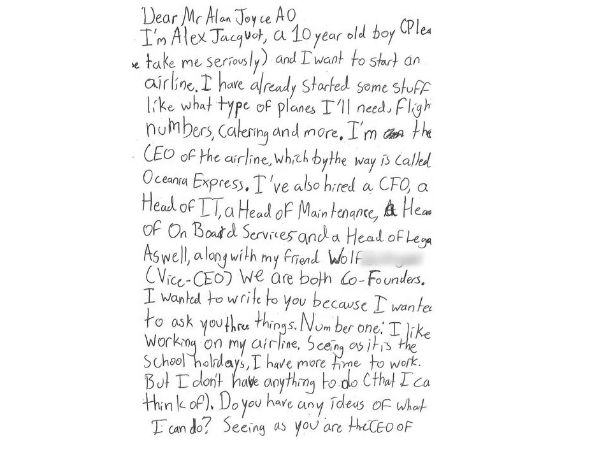 Dear Mr Alan Joyce AO
I'm Alex Jacquot, a 10 year old boy (Plea
e take me seriously) and I want to start an
airline. I have already started some stuff
like what type of planes I'll need, fligh
numbers, catering and more. I'm the
CEO of the airline, which by the way is called
Oceania Express. I've also hired a CFO, a
Head of IT, a Head of Maintenance, A Hea
of On Board Services and a Head of Lega
Aswell, along with my friend Wolf
(Vice-CEO) We are both Co-Founders.
I wanted to write to you because I wante
to ask you three things. Number one: I like
working on my airline, Seeing as it is the
School holidays, I have more time to work.
But I don't have anything to do (that I ca
think of). Do you have any ideas of what
I can do? Seeing as you are the CEO of